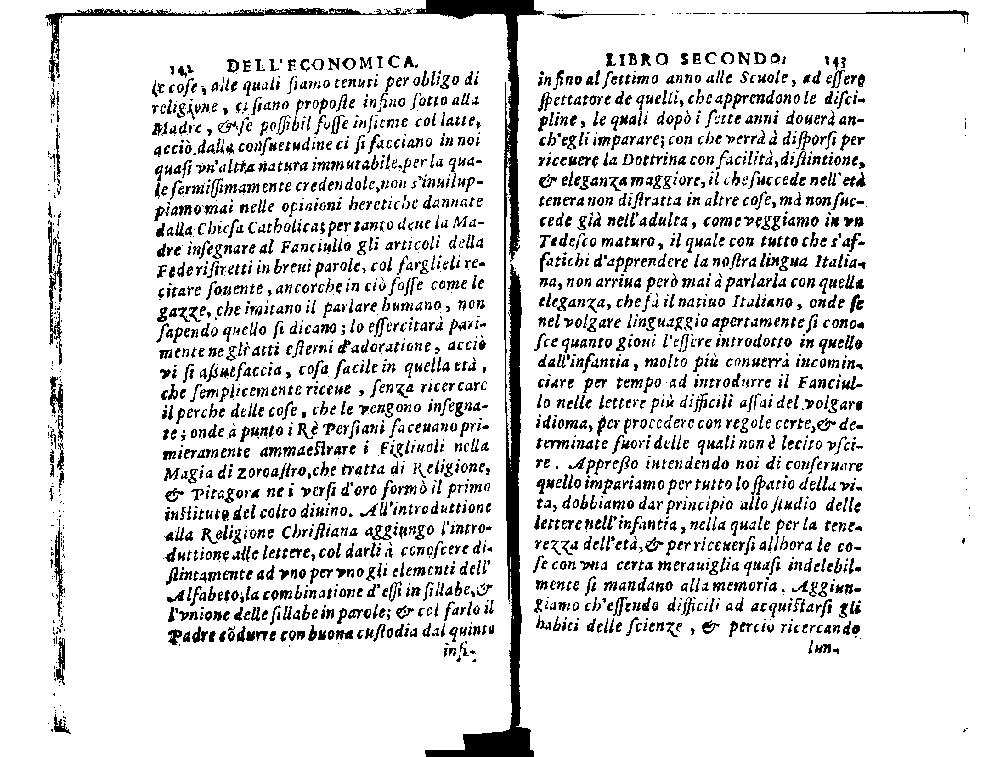 142 DELL'ECONOMICA.
le cose, alle quali siamo tenuti per obligo di
religione, ci siano proposte infino sotto alla
Madre, & se possibil fosse insieme col latte,
acciò dalla consuetudine ci si facciano in noi
quasi vn'altra natura immutabile, per la qua-
le fermissimamente credendole, non s'inuilup-
piamo mai nelle opinioni heretiche dannate
dalla Chiesa Catholica; per tanto deue la Ma-
dre insegnare al Fanciullo gli articoli della
Fede ristretti in breui parole, col farglieli re-
citare souente, ancorche in ciò fosse come le
gazze, che imitano il parlare humano, non
sapendo quello si dicano; lo essercitarà pari-
mente ne gli atti esterni d'adoratione, acciò
vi si assuefaccia, cosa facile in quella età,
che semplicemente riceue, senza ricercare
il perche delle cose, che le vengono insegna-
te; onde à punto i Rè Persiani faceuano pri-
mieramente ammaestrare i Figliuoli nella
Magia di Zoroastro, che tratta di Religione,
& Pitagora ne i versi d'oro formò il primo
instituto del colto diuino. All'introduttione
alla Religione Christiana aggiungo l'intro-
duttione alle lettere, col darli à conoscere di-
stintamente ad vno per vno gli elementi dell'
Alfabeto, la combinatione d'essi in sillabe, &
l'vnione delle sillabe in parole; & col farlo il
Padre cõdurre con buona custodia dal quinto
insi-
LIBRO SECONDO. 143
infino al settimo anno alle Scuole, ad essere
spettatore de quelli, che apprendono le disci-
pline, le quali dopò i sette anni douerà an-
ch'egli imparare; con che verrà à disporsi per
riceuere la Dottrina con facilità, distintione,
& eleganza maggiore, il che succede nell'età
tenera non distratta in altre cose, mà non suc-
cede già nell'adulta, come veggiamo in vn
Tedesco maturo, il quale con tutto che s'af-
fatichi d'apprendere la nostra lingua Italia-
na, non arriua però mai à parlarla con quella
eleganza, che fà il natiuo Italiano, onde se
nel volgare linguaggio apertamente si cono-
sce quanto gioui l'essere introdotto in quello
dall'infantia, molto più conuerrà incomin-
ciare per tempo ad introdurre il Fanciul-
lo nelle lettere più difficili assai del volgare
idioma, per procedere con regole certe, & de-
terminate fuori delle quali non è lecito vsci-
re. Appresso intendendo noi di conseruare
quello impariamo per tutto lo spatio della vi-
ta, dobbiamo dar principio allo studio delle
lettere nell'infantia, nella quale per la tene-
rezza dell'età, & per riceuersi allhora le co-
se con vna certa merauiglia quasi indelebil-
mente si mandano alla memoria. Aggiun-
giamo ch'essendo difficili ad acquistarsi gli
habiti delle scienze, & perciò ricercando
lun-